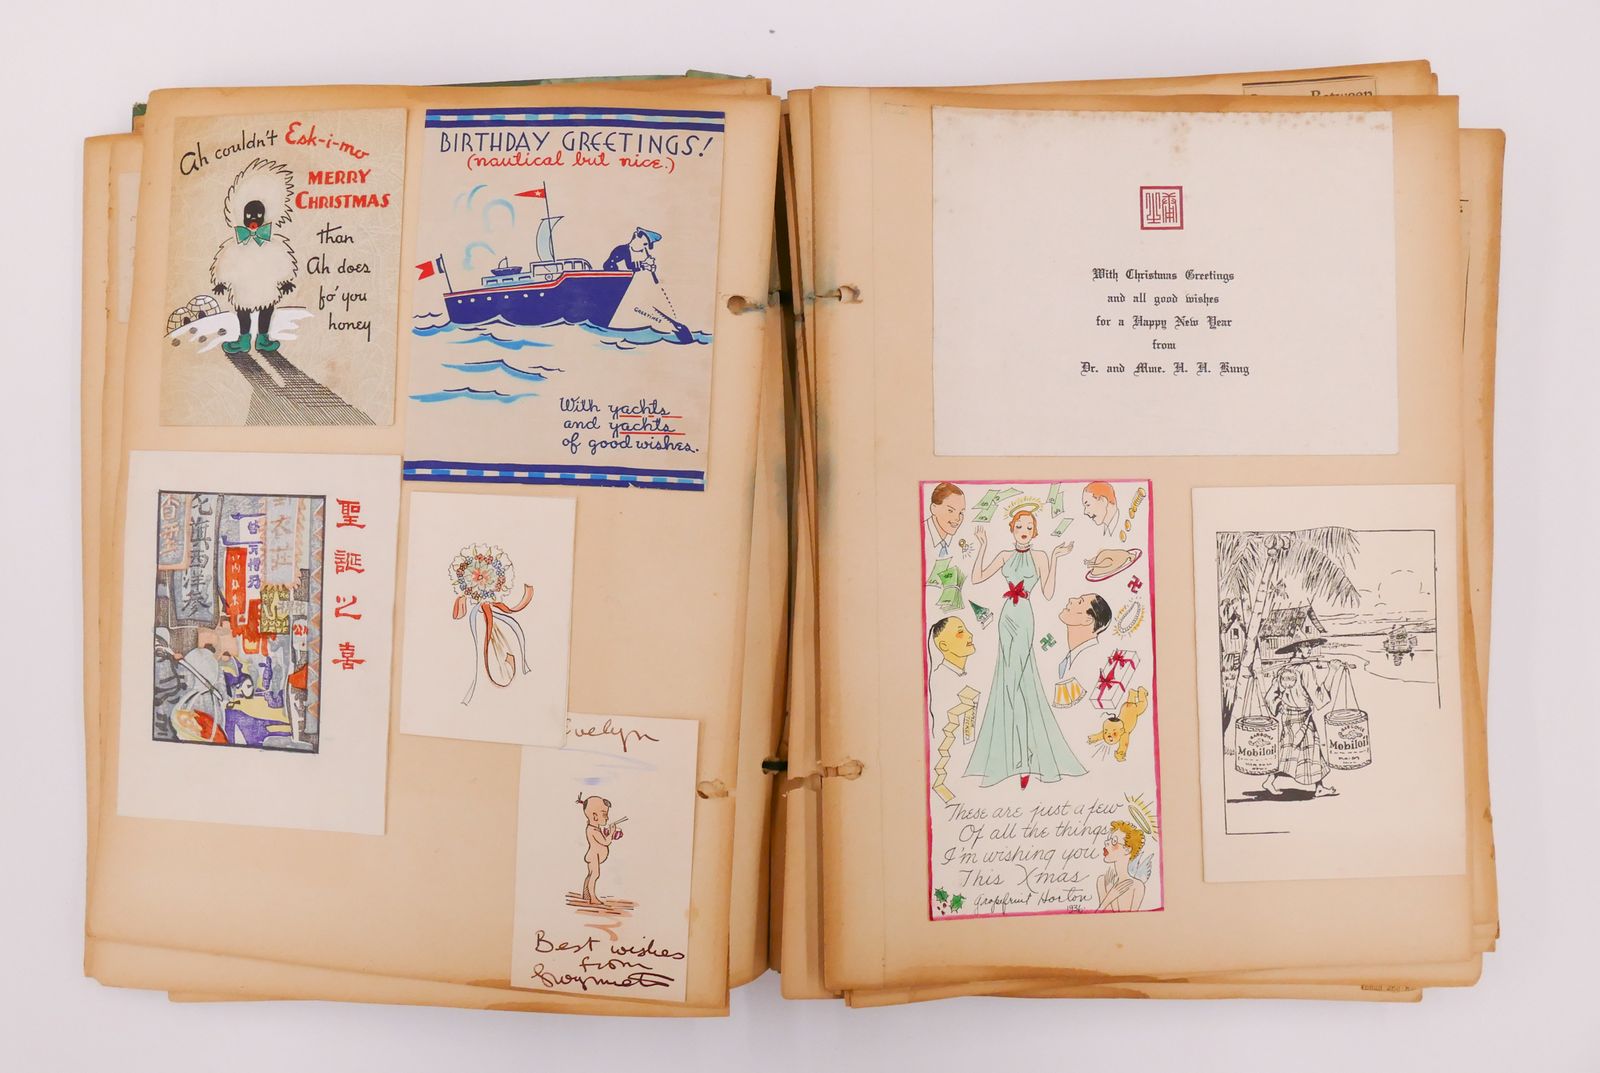 Ah couldn't Esk-i-mo
MERRY
CHRISTMAS
than
Ah does
fo' you
honey
BIRTHDAY GREETINGS!
(nautical but nice.)
GREETINGS
With yachts
and yachts
of good wishes.
北旗西洋參
衣莊
聖
誕
之
喜
Evelyn
Best wishes
from
Between
With Christmas Greetings
and all good wishes
for a Happy New Year
from
Dr. and Mme. H. H. Kung
These are just a few
Of all the things
I'm wishing you
This Xmas
Grapefruit Horton
1936
Mobiloil
Mobiloil